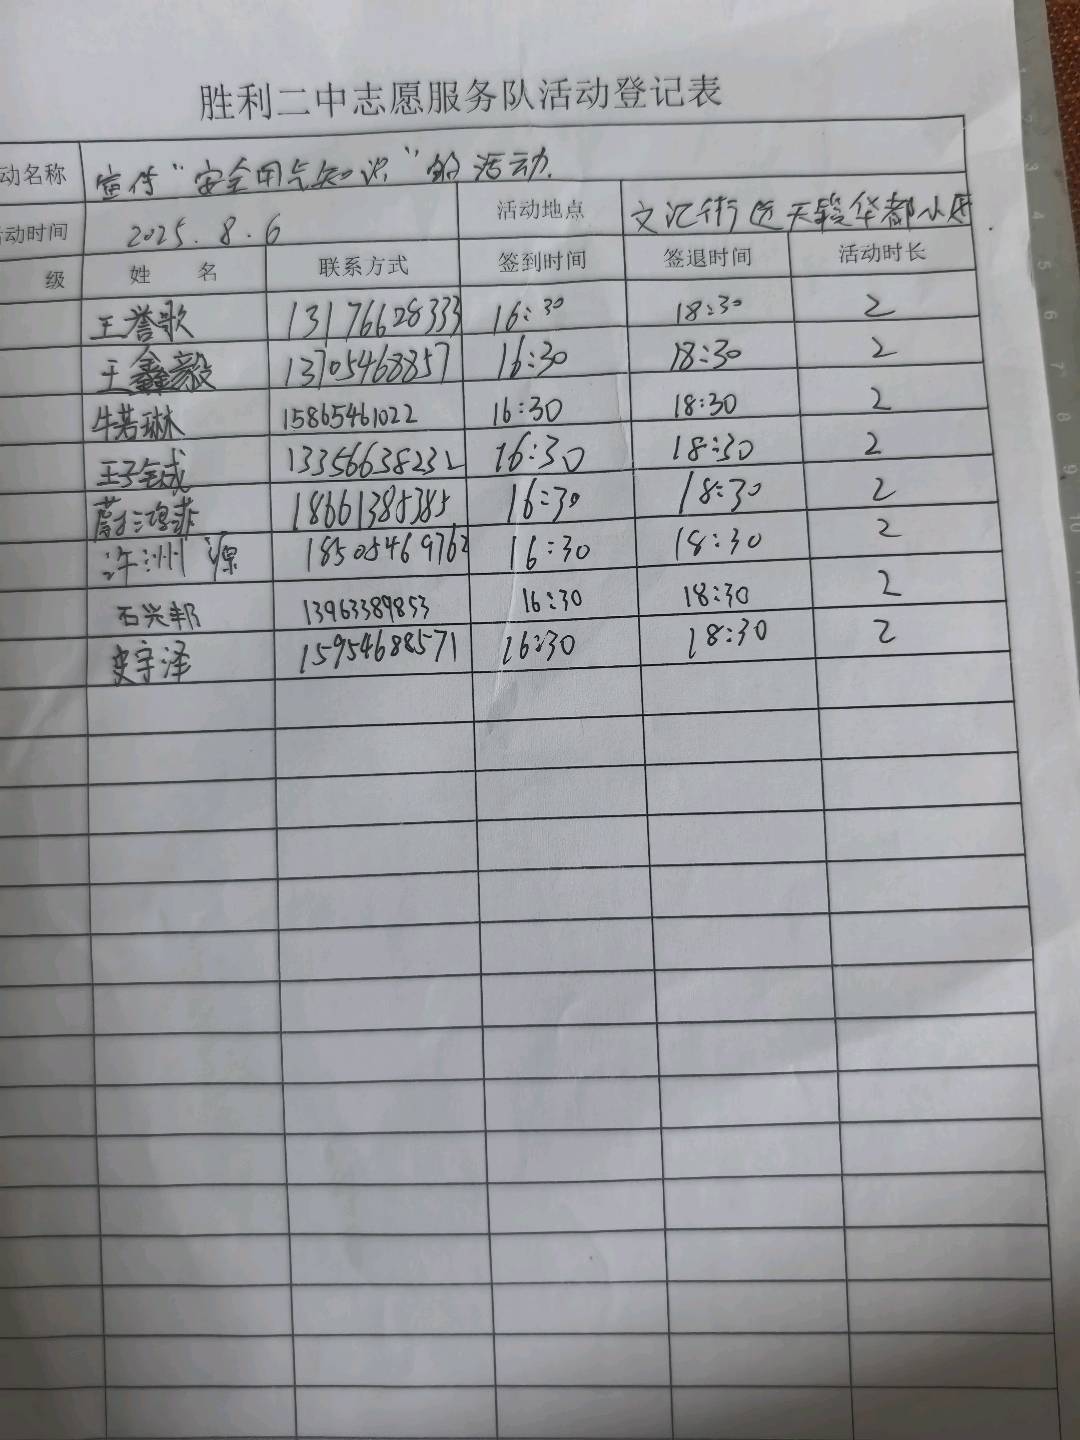 胜利二中志愿服务队活动登记表
动名称 宣传"安全用气知识"的活动.
动时间 2025.8.6 活动地点 文汇街道天鋆华都小区.
级 姓名 联系方式 签到时间 签退时间 活动时长
王誉歌 13176628333 16:30 18:30 2
王鑫毅 13705468857 16:30 18:30 2
牛若琳 15865461022 16:30 18:30 2
王子诚 13356638232 16:30 18:30 2
蔚鸿菲 18661385385 16:30 18:30 2
许洲源 18505469762 16:30 18:30 2
石兴邦 13963389853 16:30 18:30 2
史宇泽 15954688571 16:30 18:30 2